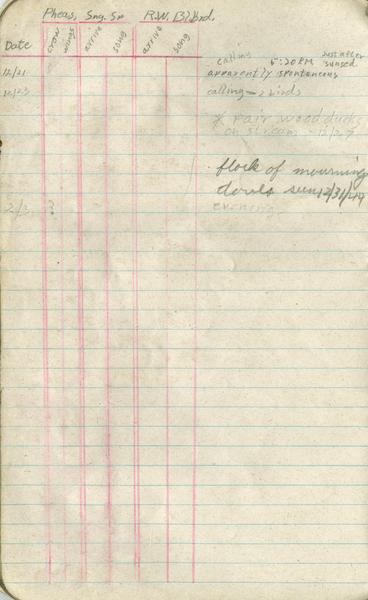 Pheas. Sng. Sp R.W. Bl. Brd.
Date crow wings arrive song arrive song
calling 5:20 PM just after sunset
12/21 apparently spontaneous
12/23 calling - 2 birds
* Pair wood ducks
on stream 12/29
flock of mourning
doves sun 12/31/49
2/3 ? evening